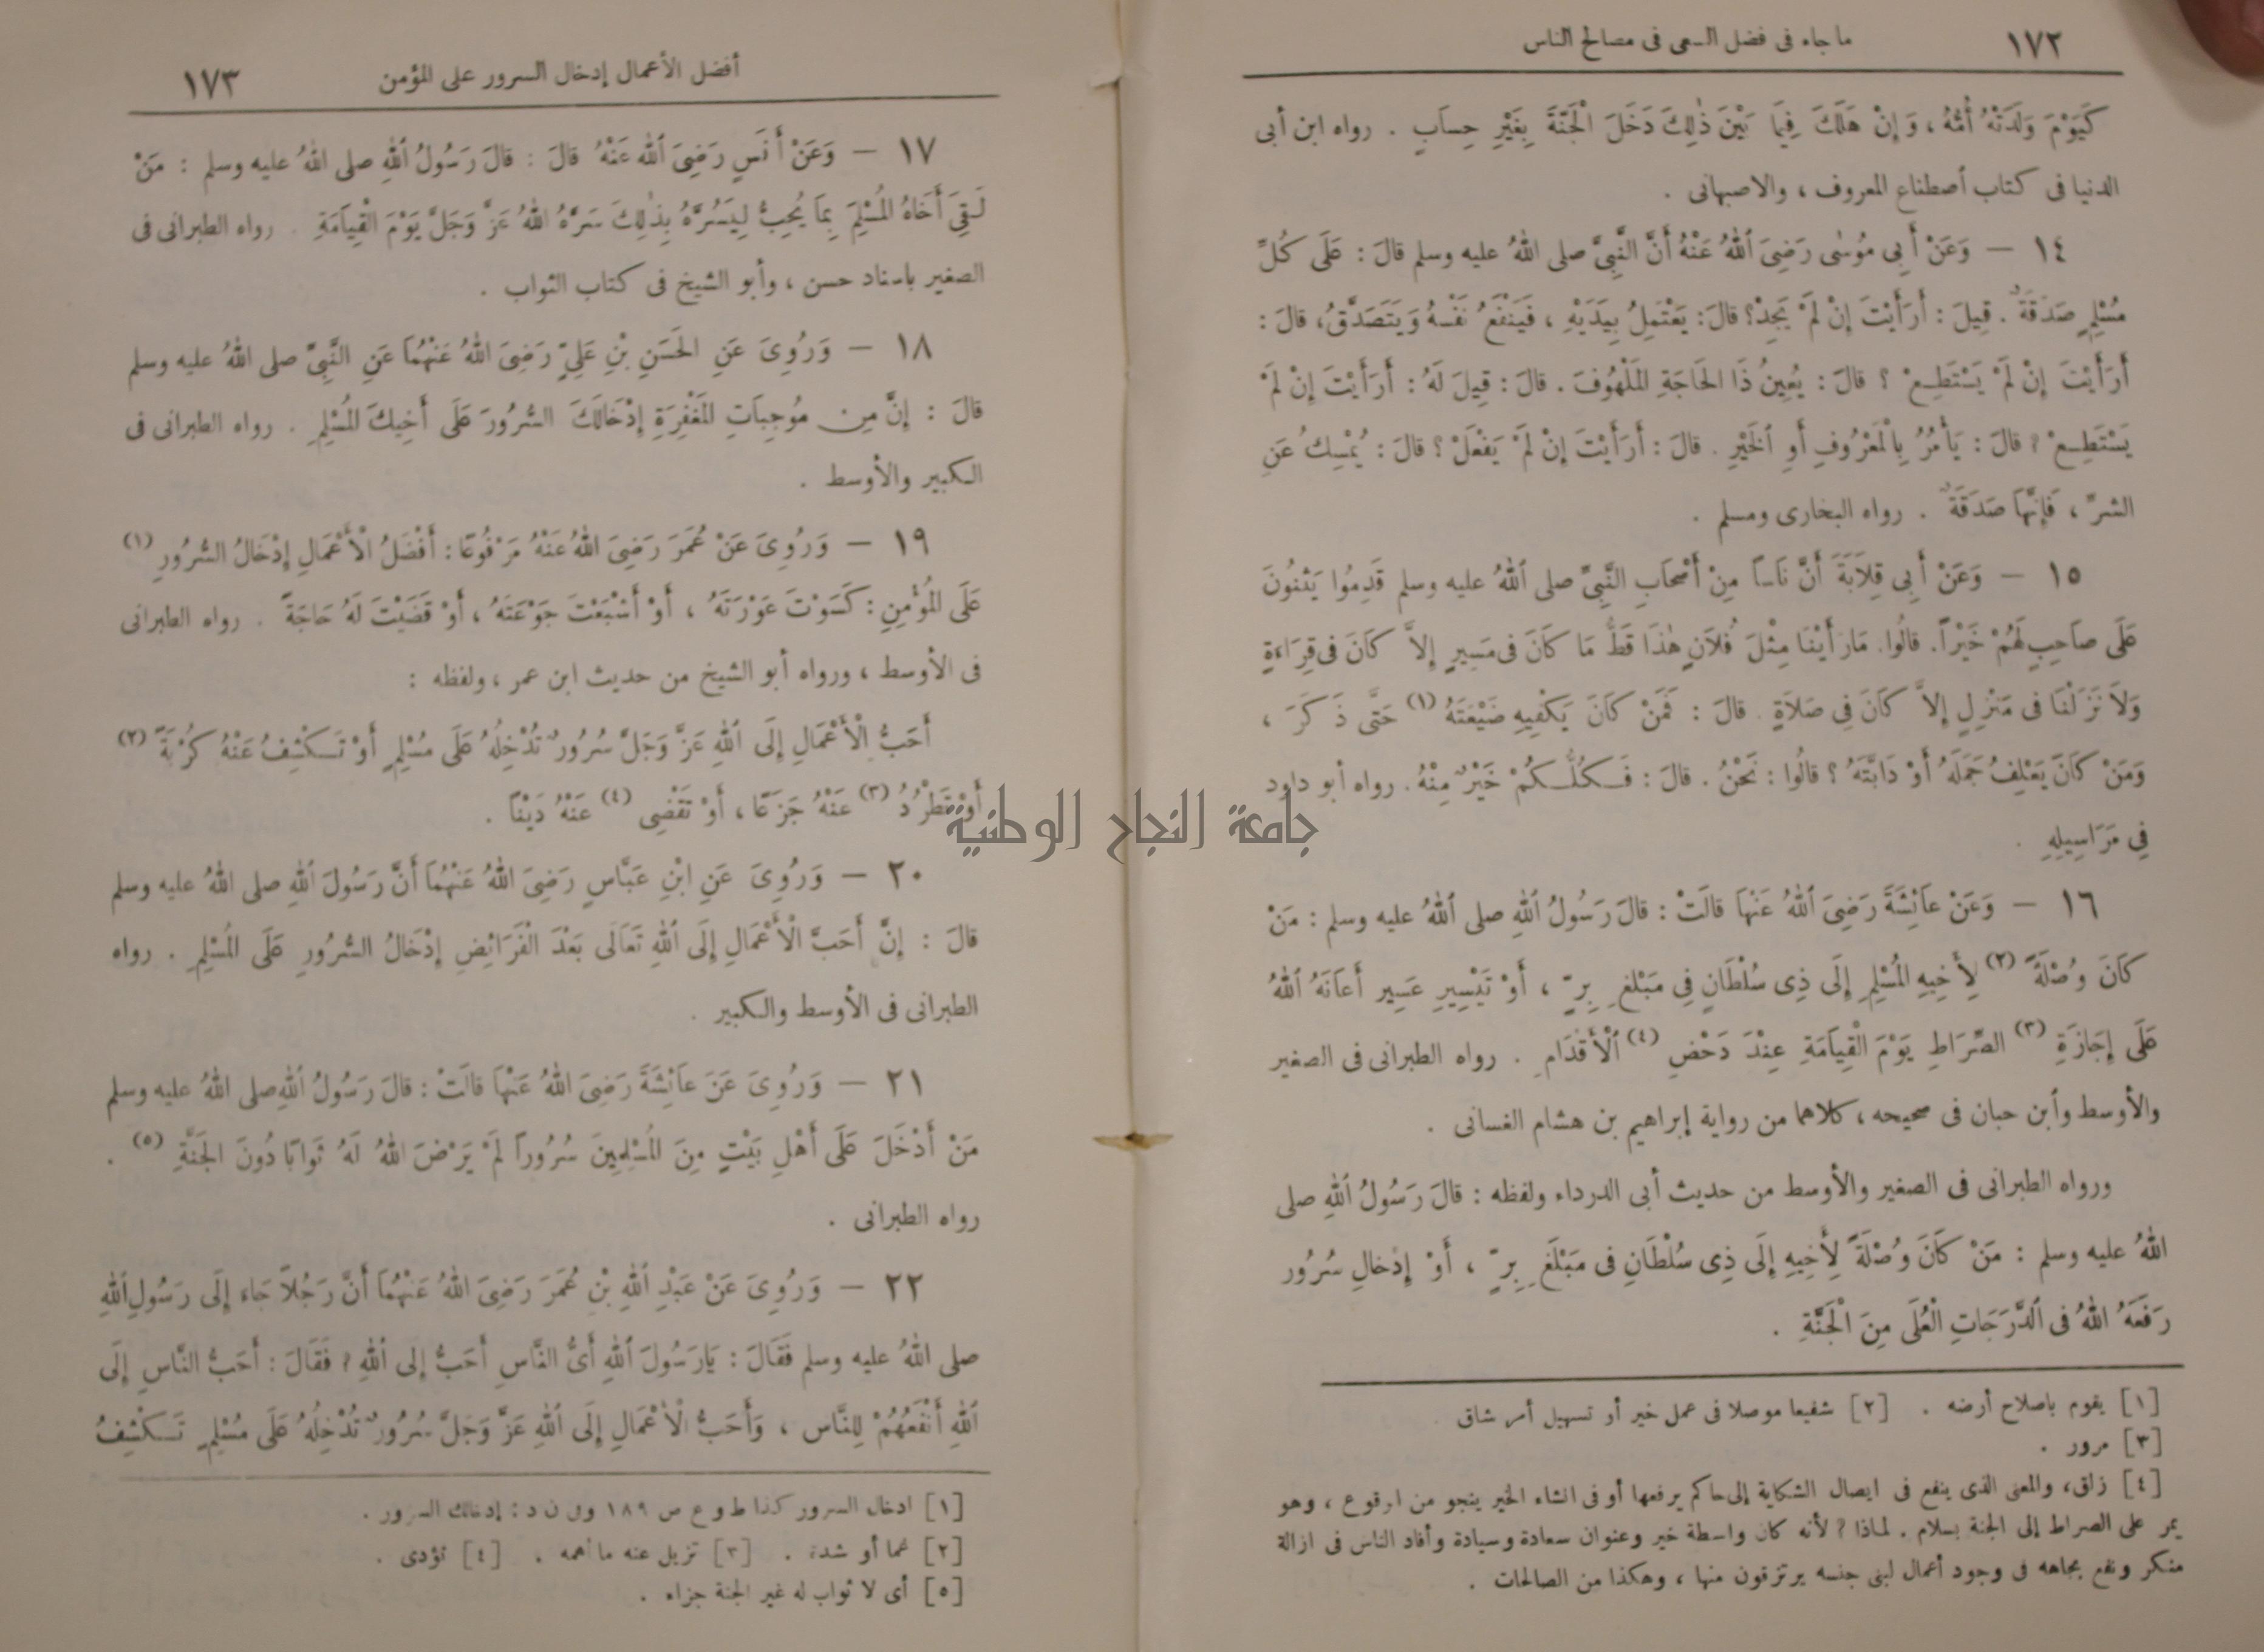 ١٧٢
ما جاء فى فضل السعى فى مصالح الناس
كَيَوْمَ وَلَدَتْهُ أُمُّهُ ، وَإِنْ هَلَكَ فِيمَا بَيْنَ ذٰلِكَ دَخَلَ الْجَنَّةَ بِغَيْرِ حِسَابٍ . رواه ابن أبى
الدنيا فى كتاب أصطناع المعروف ، والاصبهانى .
١٤ — وَعَنْ أَبِى مُوسٰى رَضِىَ ٱللهُ عَنْهُ أَنَّ النَّبِىَّ صلى اللهُ عليه وسلم قالَ : عَلَى كُلِّ
مُسْلِمٍ صَدَقَةٌ . قِيلَ : أَرَأَيْتَ إِنْ لَمْ يَجِدْ؟ قالَ : يَعْتَمِلُ بِيَدَيْهِ ، فَيَنْفَعُ نَفْسَهُ وَيَتَصَدَّقُ، قالَ :
أَرَأَيْتَ إِنْ لَمْ يَسْتَطِعْ ؟ قالَ : يُعِينُ ذَا الحَاجَةِ المَلْهُوفَ . قالَ : قِيلَ لَهُ : أَرَأَيْتَ إِنْ لَمْ
يَسْتَطِعْ ؟ قالَ : يَأْمُرُ بِالْمَعْرُوفِ أَوِ ٱلْخَيْرِ . قالَ : أَرَأَيْتَ إِنْ لَمْ يَفْعَلْ ؟ قالَ : يُمْسِكُ عَنِ
الشرِّ ، فَإِنَّهَا صَدَقَةٌ . رواه البخارى ومسلم .
١٥ — وَعَنْ أَبِى قِلَابَةَ أَنَّ نَاسًا مِنْ أَصْحَابِ النَّبِىِّ صلى ٱللهُ عليه وسلم قَدِمُوا يَثْنُونَ
عَلَى صَاحِبٍ لَهُمْ خَيْراً. قالُوا. مَارَأَيْنَا مِثْلَ فُلَانٍ هٰذَا قَطُّ مَا كَانَ فى مَسِيرٍ إِلاَّ كَانَ فى قِرَاءَةٍ
وَلَا نَزَلْنَا فى مَنْزِلٍ إِلاَّ كَانَ فِى صَلَاةٍ . قالَ : فَمَنْ كَانَ يَكْفِيهِ ضَيْعَتَهُ (١) حَتَّى ذَكَرَ ،
وَمَنْ كَانَ يَعْلِفُ جَمَلَهُ أَوْ دَابَّتَهُ ؟ قالُوا : نَحْنُ . قالَ : فَكُلُّكُمْ خَيْرٌ مِنْهُ . رواه أبو داود
فِى مَرَاسِيلِهِ .
١٦ — وَعَنْ عَائِشَةَ رَضِىَ ٱللهُ عَنْهَا قالَتْ : قالَ رَسُولُ ٱللهِ صلى ٱللهُ عليه وسلم : مَنْ
كَانَ وُصْلَةً (٢) لِأَخِيهِ الْمُسْلِمِ إِلَى ذِى سُلْطَانٍ فِى مَبْلَغِ بِرٍّ ، أَوْ تَيْسِيرِ عَسِيرٍ أَعَانَهُ ٱللهُ
عَلَى إِجَازَةِ (٣) الصِّرَاطِ يَوْمَ الْقِيَامَةِ عِنْدَ دَحْضِ (٤) ٱلْأَقْدَامِ . رواه الطبرانى فى الصغير
والأوسط وأبن حبان فى صحيحه ، كلاهما من رواية إبراهيم بن هشام الغسانى .
ورواه الطبرانى فى الصغير والأوسط من حديث أبى الدرداء ولفظه : قالَ رَسُولُ ٱللهِ صلى
اللهُ عليه وسلم : مَنْ كَانَ وُصْلَةً لِأَخِيهِ إِلَى ذِى سُلْطَانٍ فى مَبْلَغِ بِرٍّ ، أَوْ إِدْخَالِ سُرُورٍ
رَفَعَهُ اللهُ فى ٱلدَّرَجَاتِ الْعُلَى مِنَ الْجَنَّةِ .
[١] يقوم باصلاح أرضه . [٢] شفيعا موصلا فى عمل خير أو تسهيل أمر شاق .
[٣] مرور .
[٤] زلق، والمعنى الذى ينفع فى ايصال الشكاية إلى حاكم يرفعها أو فى انشاء الخير ينجو من الوقوع ، وهو
يمر على الصراط إلى الجنة بسلام . لماذا ؟ لأنه كان واسطة خير وعنوان سعادة وسيادة وأفاد الناس فى ازالة
منكر ونفع بجاهه فى وجود أعمال لبنى جنسه يرتزقون منها ، وهكذا من الصالحات .
أفضل الأعمال إدخال السرور على المؤمن
١٧٣
١٧ — وَعَنْ أَنَسٍ رَضِىَ ٱللهُ عَنْهُ قالَ : قالَ رَسُولُ ٱللهِ صلى اللهُ عليه وسلم : مَنْ
لَقِىَ أَخَاهُ الْمُسْلِمَ بِمَا يُحِبُّ لِيَسُرَّهُ بِذٰلِكَ سَرَّهُ اللهُ عَزَّ وَجَلَّ يَوْمَ الْقِيَامَةِ . رواه الطبرانى فى
الصغير باسناد حسن ، وأبو الشيخ فى كتاب الثواب .
١٨ — وَرُوِىَ عَنِ الحَسَنِ بْنِ عَلِىٍّ رَضِىَ اللهُ عَنْهُمَا عَنِ النَّبِىِّ صلى اللهُ عليه وسلم
قالَ : إِنَّ مِنْ مُوجِبَاتِ المَغْفِرَةِ إِدْخَالَكَ السُّرُورَ عَلَى أَخِيكَ الْمُسْلِمِ . رواه الطبرانى فى
الكبير والأوسط .
١٩ — وَرُوِىَ عَنْ عُمَرَ رَضِىَ اللهُ عَنْهُ مَرْفُوعًا : أَفْضَلُ الْأَعْمَالِ إِدْخَالُ السُّرُورِ (١)
عَلَى الْمُؤْمِنِ : كَسَوْتَ عَوْرَتَهُ ، أَوْ أَشْبَعْتَ جَوْعَتَهُ ، أَوْ قَضَيْتَ لَهُ حَاجَةً . رواه الطبرانى
فى الأوسط ، ورواه أبو الشيخ من حديث ابن عمر ، ولفظه :
أَحَبُّ الْأَعْمَالِ إِلَى ٱللهِ عَزَّ وَجَلَّ سُرُورٌ تُدْخِلُهُ عَلَى مُسْلِمٍ أَوْ تَكْشِفُ عَنْهُ كُرْبَةً (٢)
أَوْ تَطْرُدُ (٣) عَنْهُ جَزَعًا ، أَوْ تَقْضِى (٤) عَنْهُ دَيْنًا .
جامعة النجاح الوطنية
٢٠ — وَرُوِىَ عَنِ ابْنِ عَبَّاسٍ رَضِىَ اللهُ عَنْهُمَا أَنَّ رَسُولَ ٱللهِ صلى اللهُ عليه وسلم
قالَ : إِنَّ أَحَبَّ الْأَعْمَالِ إِلَى ٱللهِ تَعَالَى بَعْدَ الْفَرَائِضِ إِدْخَالُ السُّرُورِ عَلَى الْمُسْلِمِ . رواه
الطبرانى فى الأوسط والكبير .
٢١ — وَرُوِىَ عَنَ عَائِشَةَ رَضِىَ اللهُ عَنْهَا قالَتْ : قالَ رَسُولُ ٱللهِ صلى اللهُ عليه وسلم
مَنْ أَدْخَلَ عَلَى أَهْلِ بَيْتٍ مِنَ الْمُسْلِمِينَ سُرُوراً لَمْ يَرْضَ اللهُ لَهُ ثَوَابًا دُونَ الجَنَّةِ (٥) .
رواه الطبرانى .
٢٢ — وَرُوِىَ عَنْ عَبْدِ ٱللهِ بْنِ عُمَرَ رَضِىَ اللهُ عَنْهُمَا أَنَّ رَجُلاً جَاءَ إِلَى رَسُولِ ٱللهِ
صلى اللهُ عليه وسلم فَقَالَ : يَارَسُولَ ٱللهِ أَىُّ النَّاسِ أَحَبُّ إِلى ٱللهِ ؟ فَقَالَ : أَحَبُّ النَّاسِ إِلَى
ٱللهِ أَنْفَعُهُمْ لِلنَّاسِ ، وَأَحَبُّ الْأَعْمَالِ إِلَى ٱللهِ عَزَّ وَجَلَّ سُرُورٌ تُدْخِلُهُ عَلَى مُسْلِمٍ تَكْشِفُ
[١] ادخال السرور كذا ط و ع ص ١٨٩ وفى ن د : إدخالك السرور .
[٢] غما أو شدة . [٣] تزيل عنه ما أهمه . [٤] تؤدى .
[٥] أى لا ثواب له غير الجنة جزاء .